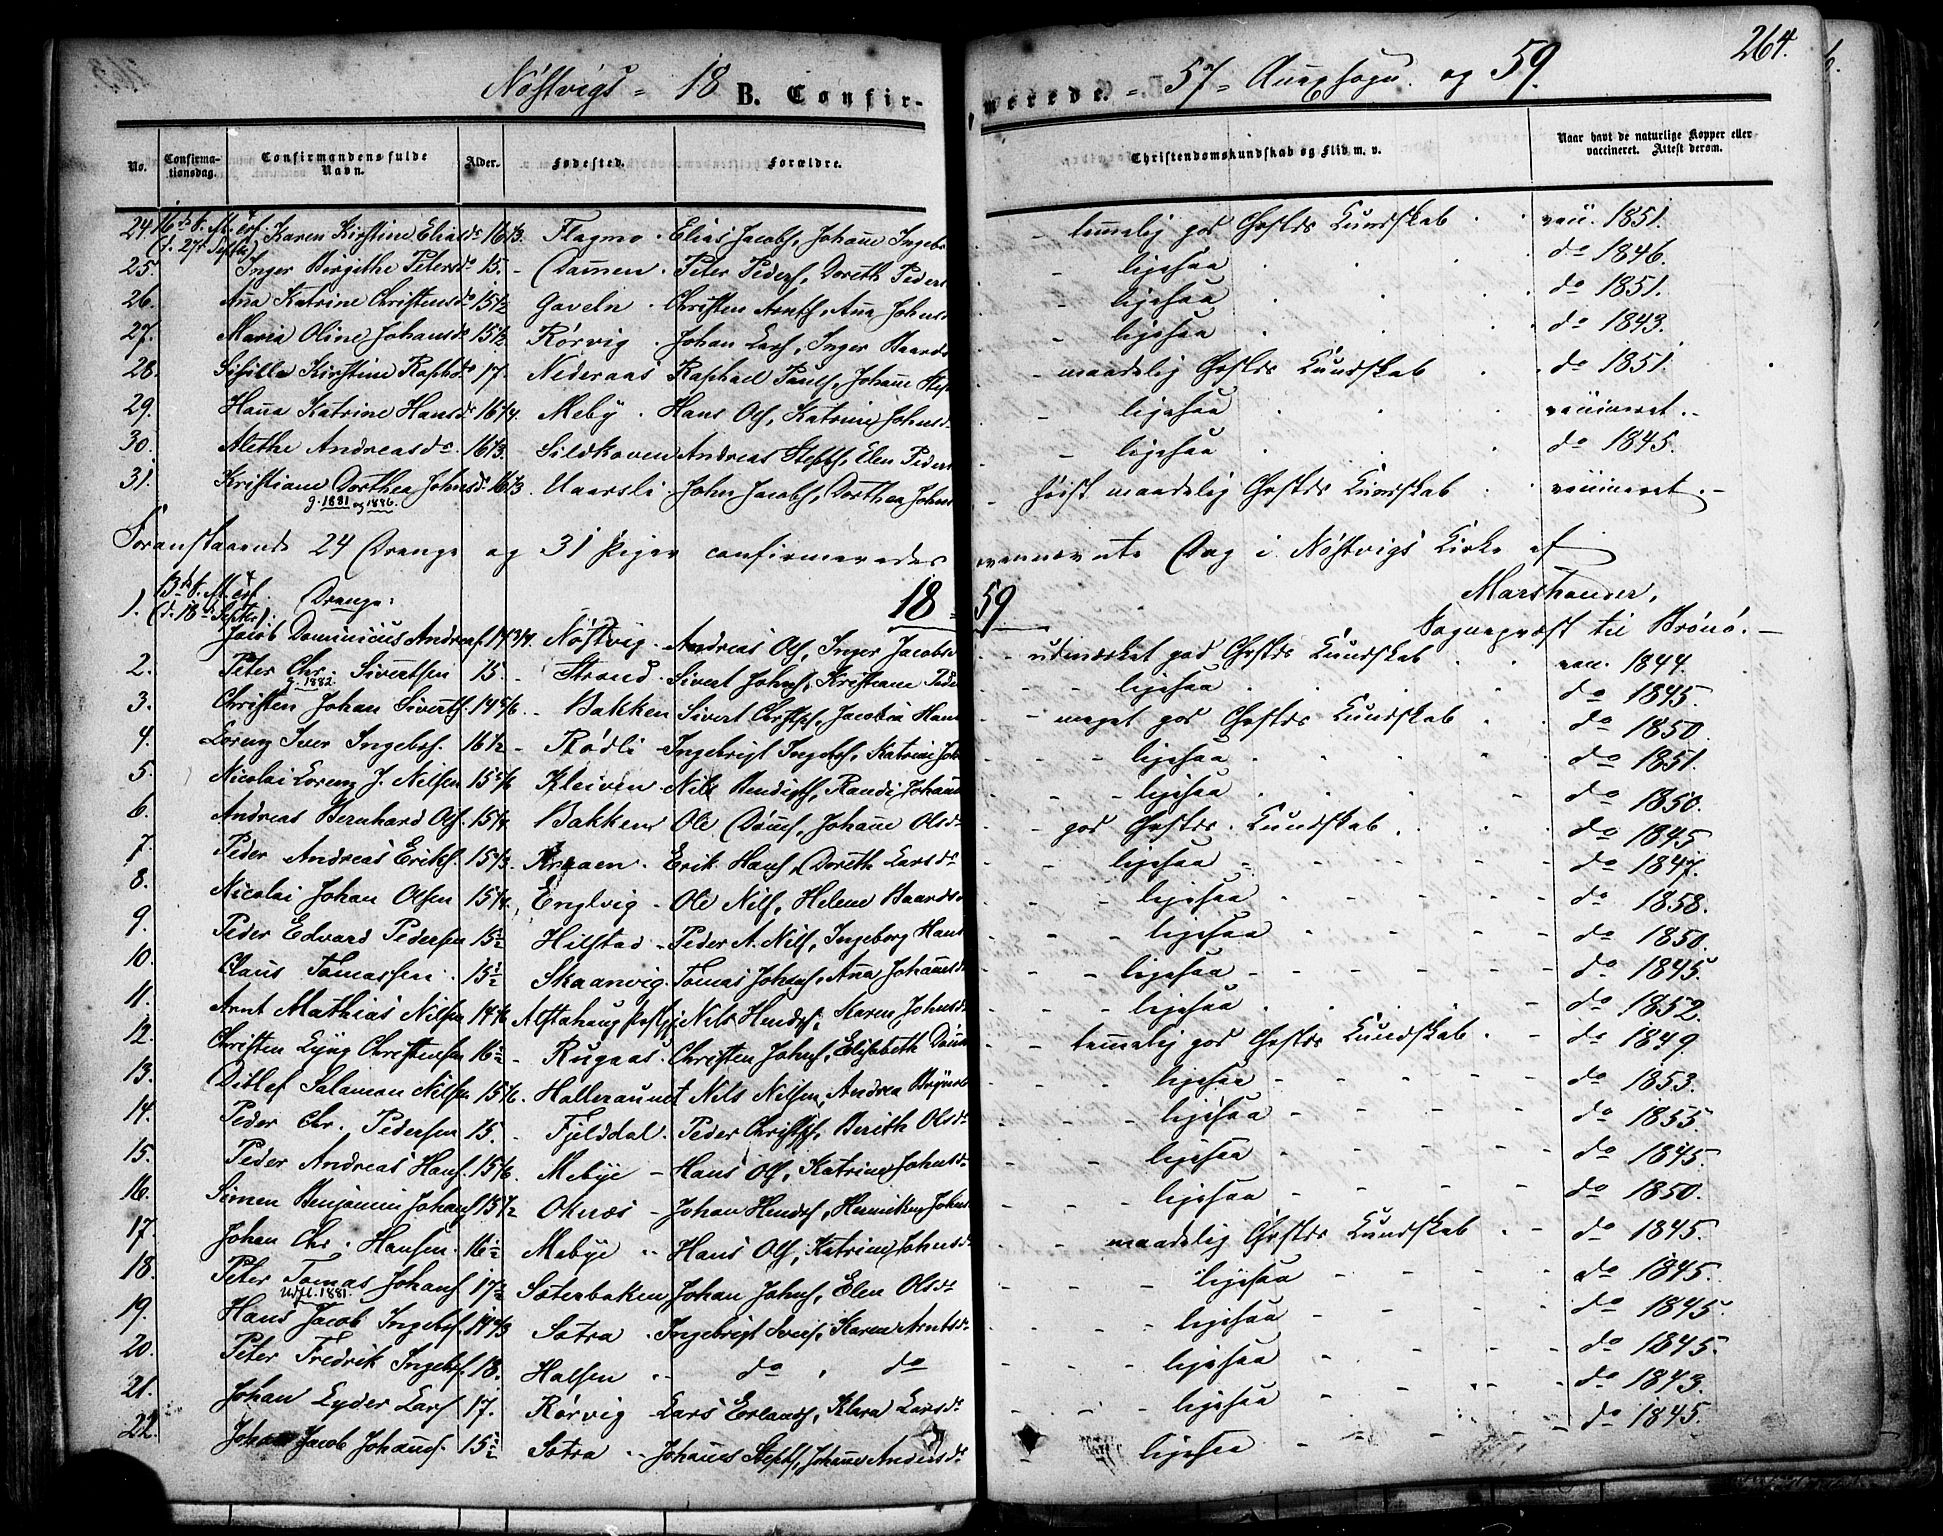 264.
Nöstvigs - 18 B. Confir- merede. - 57 - Anexsogn. og 59.
No. Confirma-tionsdag. Confirmandens fulde Navn. Alder. Fødested. Forældre. Christendomskundskab og Flid m. v. Naar havt de naturlige Kopper eller vaccineret. Attest derom.
24. 16de S. Karen Kirstine Eliasdr 16 1/3. Flagmo. Elias Jacobs, Johane Ingebr - temmelig god Chrstds Kundskab vacc. 1851.
25. Inger Birgithe Petersdr 15. - Dannen. Peter Peders, Doreth Peders - ligesaa do 1846.
26. Ana Katrine Christensdr 15 1/2 Gaveln. Christen Arnts, Ana Johnsd - ligesaa do 1851.
27. Maria Oline Johansdr 15 1/2 Rørvig. Johan Lars, Inger Baards - ligesaa do 1843.
28. Sisilla Kirstine Raphsdr 17. Nederaas Raphael Pauls, Johane - maadelig Chrstds Kundskab do 1851.
29. Hana Katrine Hansdr 16 1/4. Meby. Hans Ols, Katrine Johnsd - ligesaa vaccineret. -
30. Alethe Andreasdr 16 1/3. Sildkoven Andreas Stephs, Elen Peders - ligesaa do 1845.
31. Kristiane Dorthea Johnsdr 16 1/3. Vaarsli John Jacobs, Dorthea Johns - høist maadelig Chrstds Kundskab vaccineret. -
g. 1881 og 1886.
Foranstaaende 24 Drenge og 31 Piger confirmeredes ovennævnte Dag i Nöstvigs Kirke af
Marshander,
Sognepræst til Brönö. -
18 - 59
1. 13de S. (d. 18de Septbr): Drenge:
Jacob Dominicus Andreas. 14 3/4. Nöstvig. Andreas Ols, Inger Jacobs - udmærket god Chrstds Kundskab vacc. 1844.
2. Peter Chr. Sivertsen 15. - Strand. Sivert Johns, Kristiane Peder - ligesaa do 1845.
g. 1882.
3. Christen Johan Siverts 14 5/6. - Bakken Sivert Chrstphs, Jacobia Hans - meget god Chrstds Kundskab do 1850.
4. Lorenz Iver Ingebrs. 16 1/2 - Rödli - Ingebrigt Ingebrs, Katrine Joh - ligesaa do 1851.
5. Nicolai Lorenz J. Nilsen 15 5/6 Kleiven - Nils Bendigts, Randi Johans - ligesaa do 1850.
6. Andreas Bernhard Ols. 15 1/4. Bakken Ole Döns, Johane Olsdr - god Chrstds. Kundskab do 1845
7. Peder Andreas Eriks. 15 1/3. Erik Hans, Doreth Larsdr - ligesaa do 1847.
8. Nicolai Johan Olsen 15 1/4. Englvig - Ole Nils, Helene Baards - ligesaa do 1858.
9. Peder Edvard Pedersen 15 1/2 Hilstad - Peder A. Nils, Ingeborg Hans - ligesaa do 1850.
10. Claus Tomassen. 15 1/2 Skaanvig. Tomas Johns, Ana Johansd - ligesaa do 1845.
11. Arnt Mathias Nilsen 14 5/6 Alstahaug Nils Hendrs, Karen Johnsd - ligesaa do 1852.
12. Christen Lyng Christensen 16 1/2 - Rugaas. Christen Johns, Elisabeth Döns - temmelig god Chrstds Kundskab do 1849
13. Ditlef Salamon Nilsen 15 1/6. Halleraunet Nils Nilsen, Andrea - ligesaa do 1853.
14. Peder Chr. Pedersen 15. - Fjelddal. Peder Christphs, Berith Olsdr - ligesaa do 1855.
15. Peder Andreas Hans. 15 5/6. Mebye - Hans Ols, Katrine Johnsd - ligesaa do 1845.
16. Simen Benjamin Johans 15 1/2 Oknæs - Johan Hendrs, Henrikke Johns - ligesaa do 1850.
17. Johan Chr. Hansen. 16 1/2 Mebye - Hans Ols, Katrine Johnsdr maadelig Chrstds Kundskab do 1845.
18. Peter Tomas Johans 17 1/2 Sæterbakken Johan Johns, Elen Olsdr - ligesaa do 1845.
Udfl. 1881.
19. Hans Jacob Ingebrs. Sotra - Ingebrigt Ivers, Karen Arntsdr - ligesaa do 1845.
20. Peter Fredrik Ingebrs. 18. Halsen - do, do - ligesaa do 1845.
21. Johan Lyder Lars 17. Rörvig - Lars Erlands, Klara Larsdr - ligesaa do 1843.
22. Johan Jacob Johans. 15 1/2 Sotra - Johanes Stephs, Johane Andersdr - ligesaa do 1845.